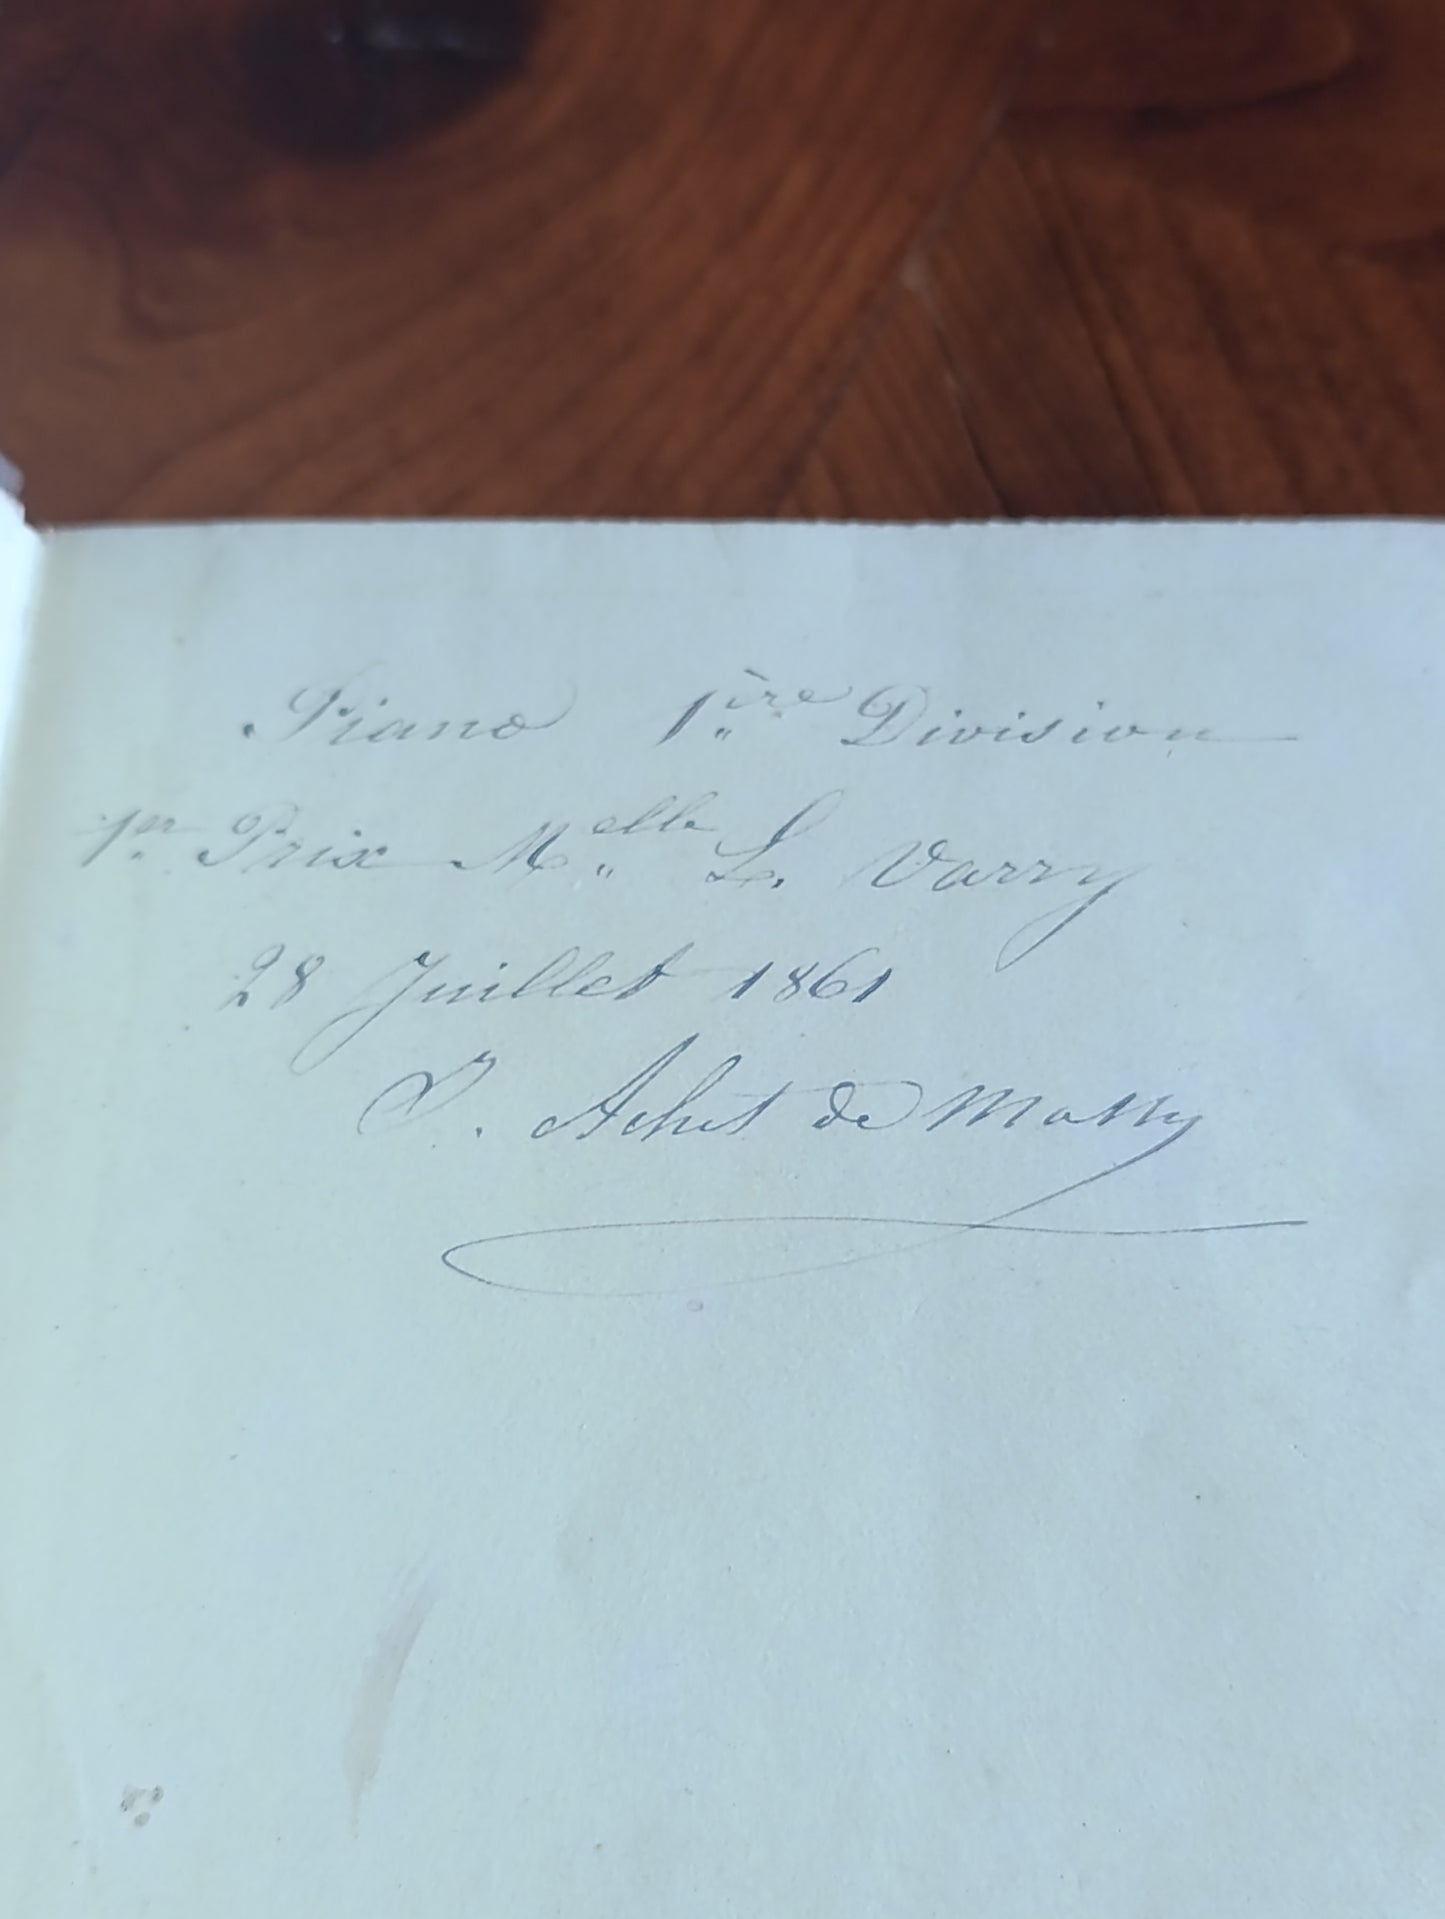 Piano 1ère Division
1er Prix Melle L. Varry
28 Juillet 1861
de